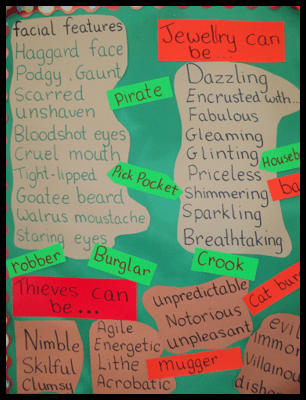 facial features
Haggard face
Podgy. Gaunt
Scarred
unshaven
Bloodshot eyes
Cruel mouth
Tight-lipped
Goatee beard
Walrus moustache
Staring eyes
Pirate
Pick Pocket
Jewellry can
be...
Dazzling
Encrusted with...
Fabulous
Gleaming
Glinting
Priceless
Shimmering
Sparkling
Breathtaking
robber
Burglar
Crook
Thieves can
be...
Nimble
Skilful
Clumsy
Agile
Energetic
Lithe
Acrobatic
unpredictable
Notorious
unpleasant
mugger
Cat bur
evi
immor
Villainou
dishon